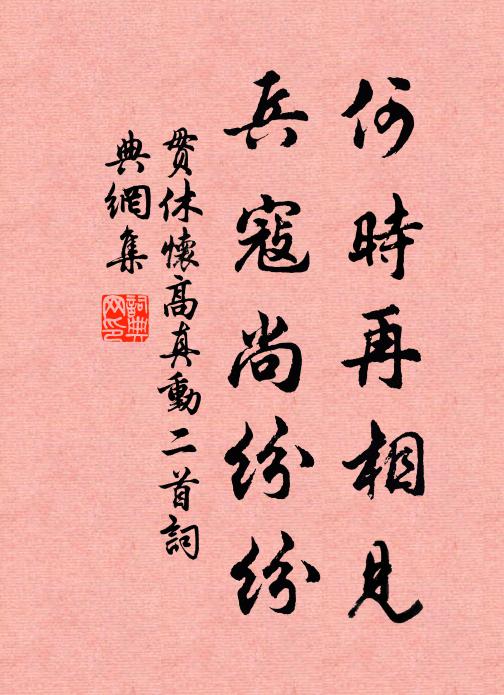 何時再相見
兵寇尚紛紛
貫休懷高真動二首詞
典網集
詞典
网印